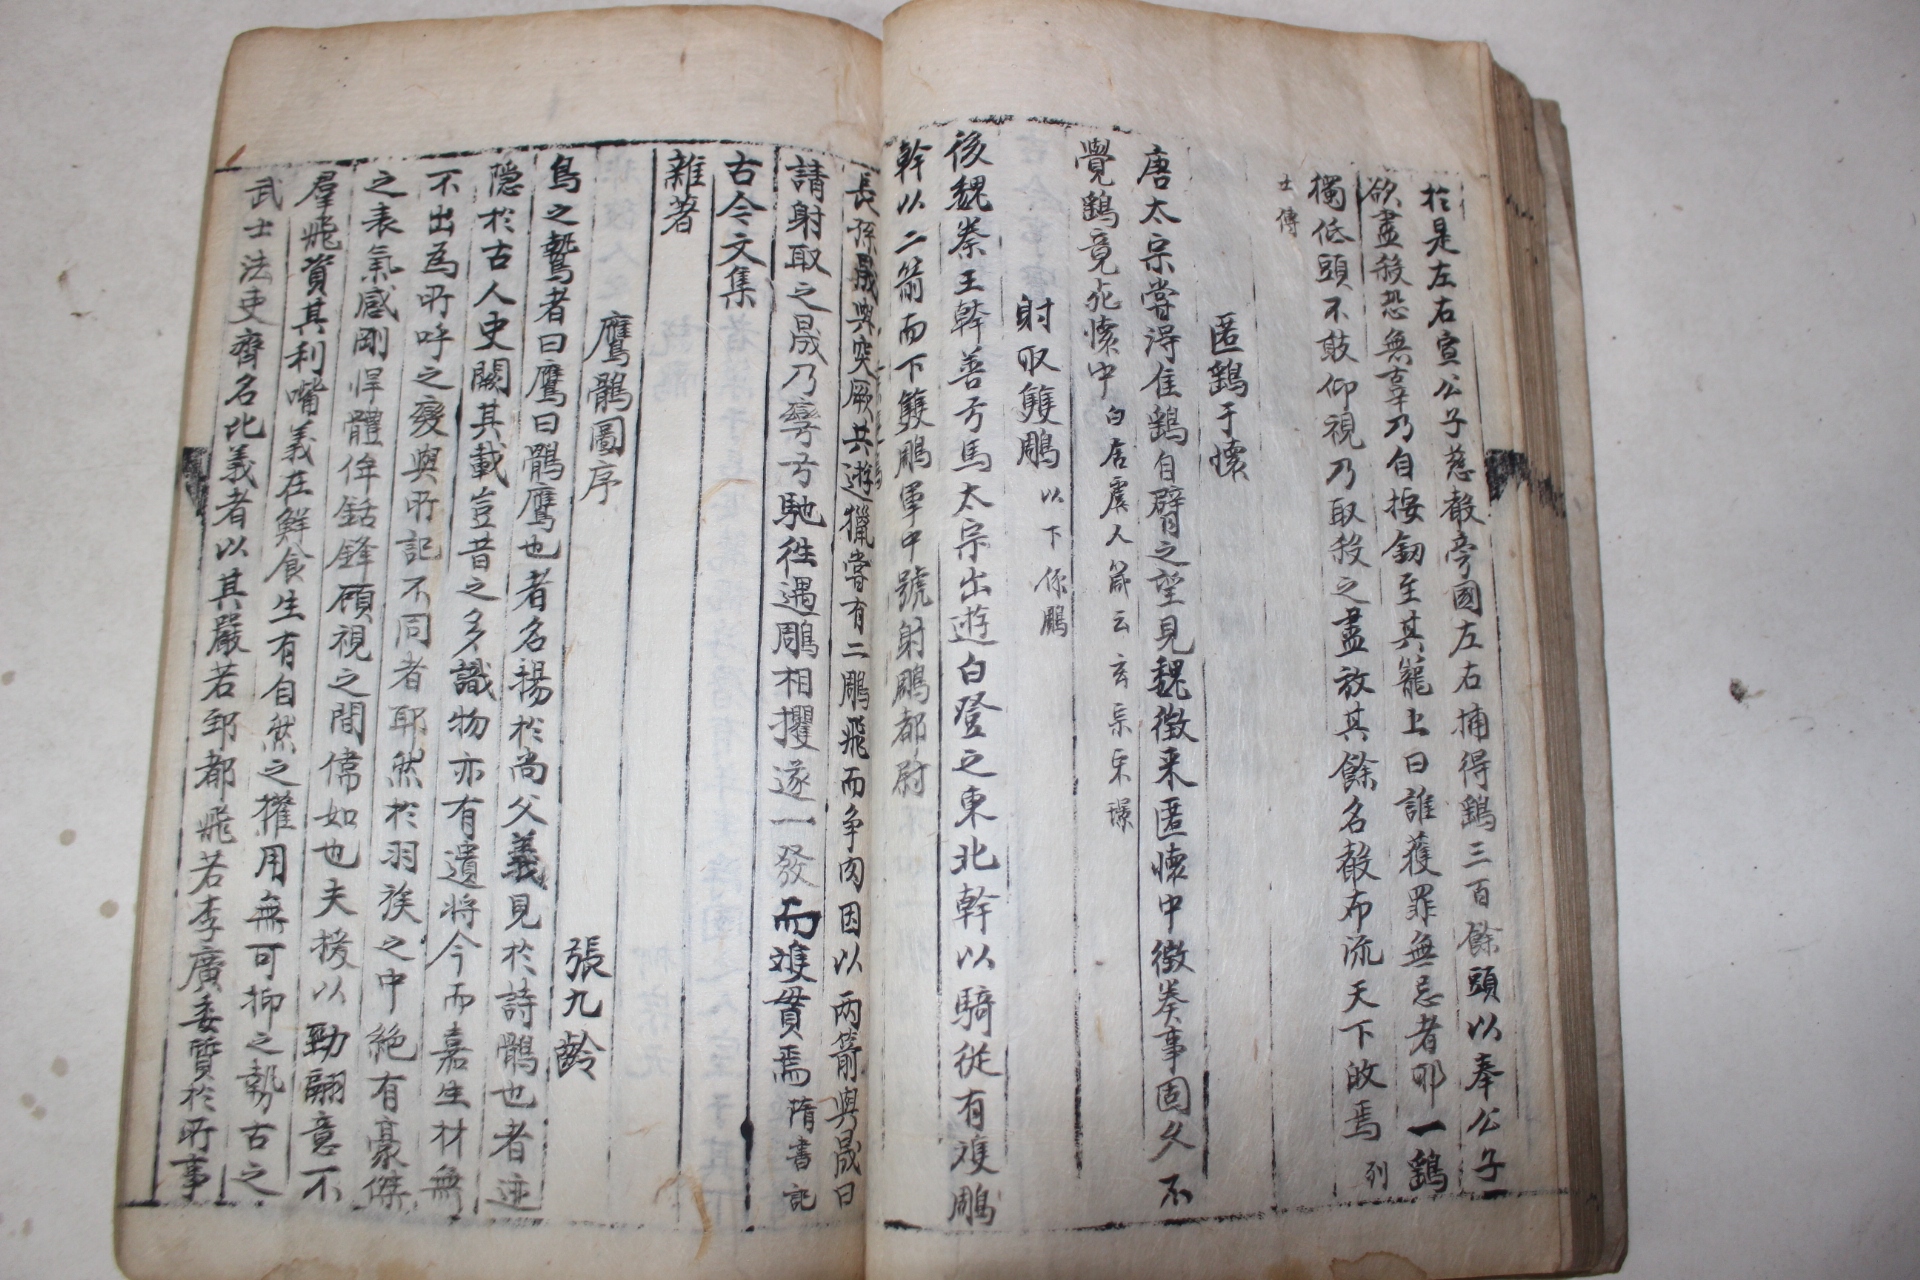 於是左右宣公子慈聲旁國左右捕得鷂三百餘頭以奉公子
欲盡殺恐無辜乃自按劒至其籠上曰誰獲罪無忌者耶一鷂
獨低頭不敢仰視乃取殺之盡放其餘名聲布流天下故焉列
士傳
匿鷂于懷
唐太宗嘗得佳鷂自臂之望見魏徵来匿懷中徵奏事固久不
覺鷂竟死懷中白居虞人箴云玄宗宋璟
射取雙鵰以下係鵰
後魏秦王幹善弓馬太宗出遊白登之東北幹以騎從有雙鵰
幹以二箭而下雙鵰軍中號射鵰都尉
長孫晟與突厥共遊獵嘗有二鵰飛而争肉因以两箭與晟曰
請射取之晟乃彎弓馳徃遇鵰相攫遂一發而雙貫焉隋書記
古今文集
雜著
鷹鶻圖序
張九齡
鳥之鷙者曰鷹曰鶻鷹也者名揚於尚父義見於詩鶻也者迹
隱於古人史闕其載豈昔之多識物亦有遺將今而嘉生材無
不出為所呼之變與所記不同者耶然於羽族之中絶有豪傑
之表氣感剛悍體侔銛鋒顧視之間儒如也夫援以勁翮意不
羣飛資其利嘴義在鮮食生有自然之擢用無可抑之勢古之
武士法吏齊名比義者以其嚴若郅都飛若李廣委質於所事